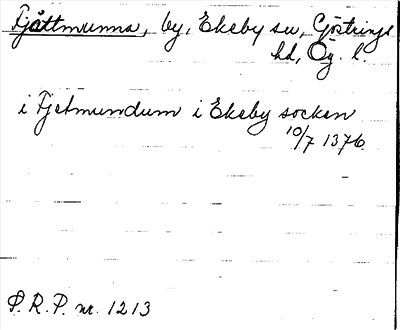 Fjättmunna, by, Ekeby sn, Göstrings
hd, Ög. l.
i Fjetmundum i Ekeby socken
10/7 1376.
S. R. P. nr. 1213